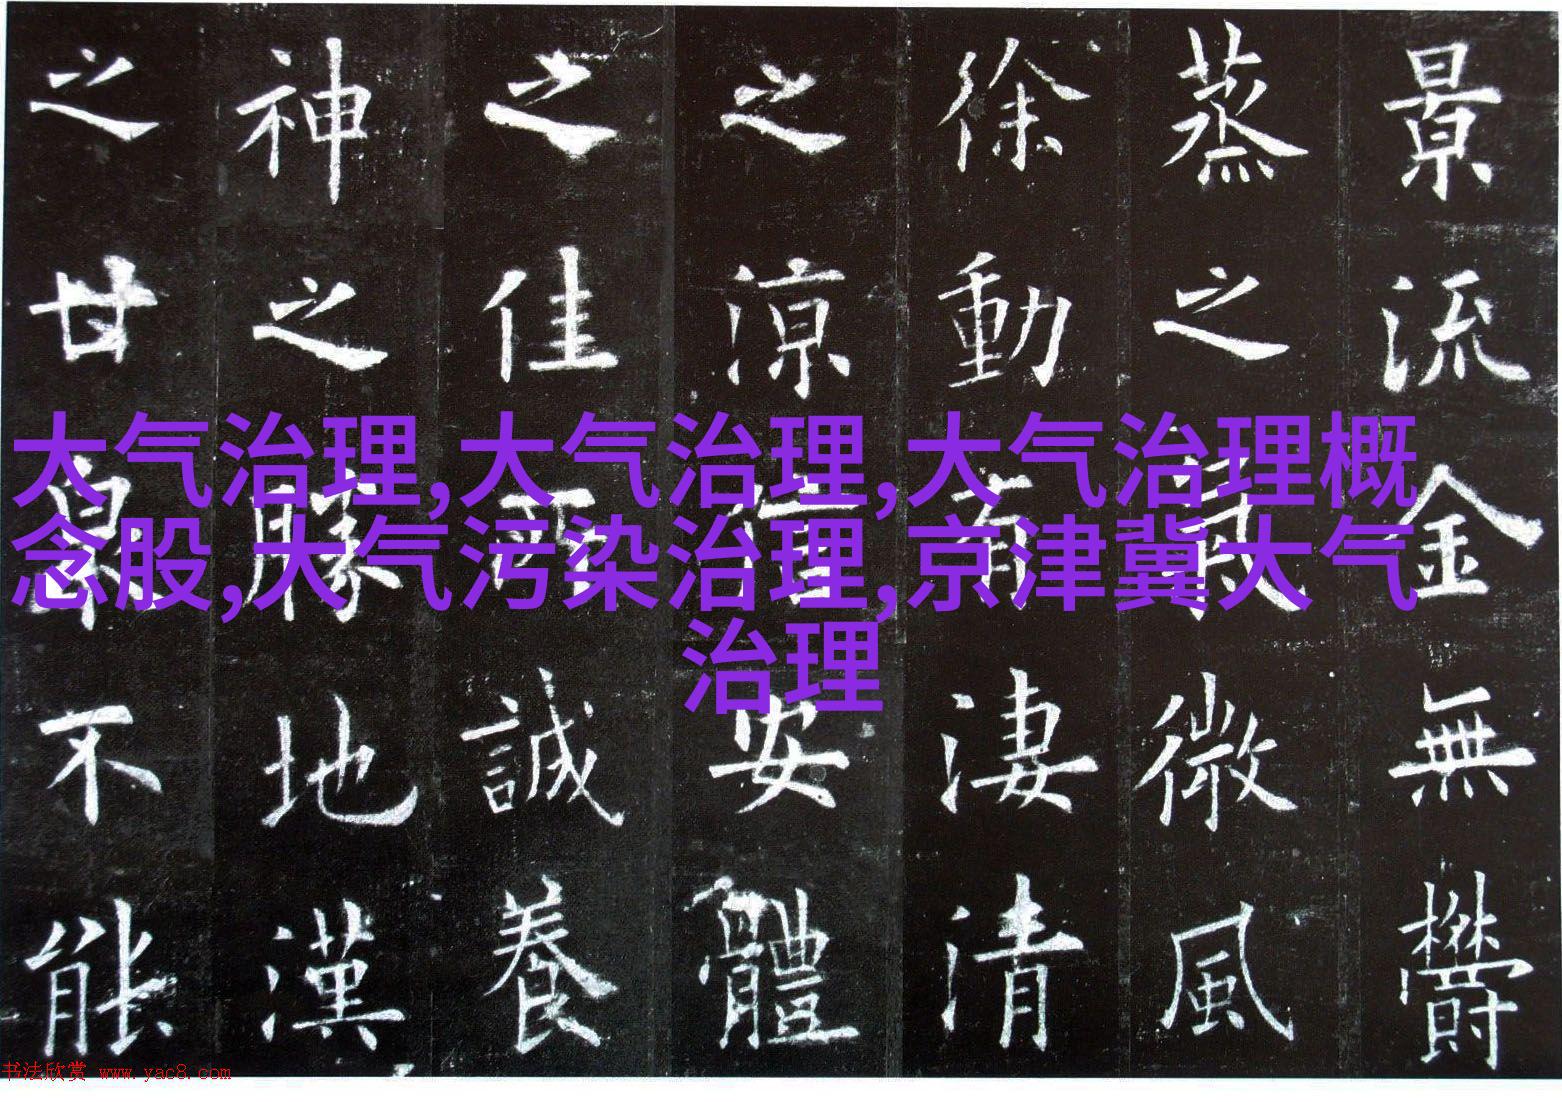 景流金無鬱
蒸之氣微風
徐動有淒清
之涼信安體
之佳所誠養
神之勝地漢
之甘泉不能
大气治理,大气治理,大气治理概
念股,大气污染治理,京津冀大气
治理
书法欣赏 www.yac8.com